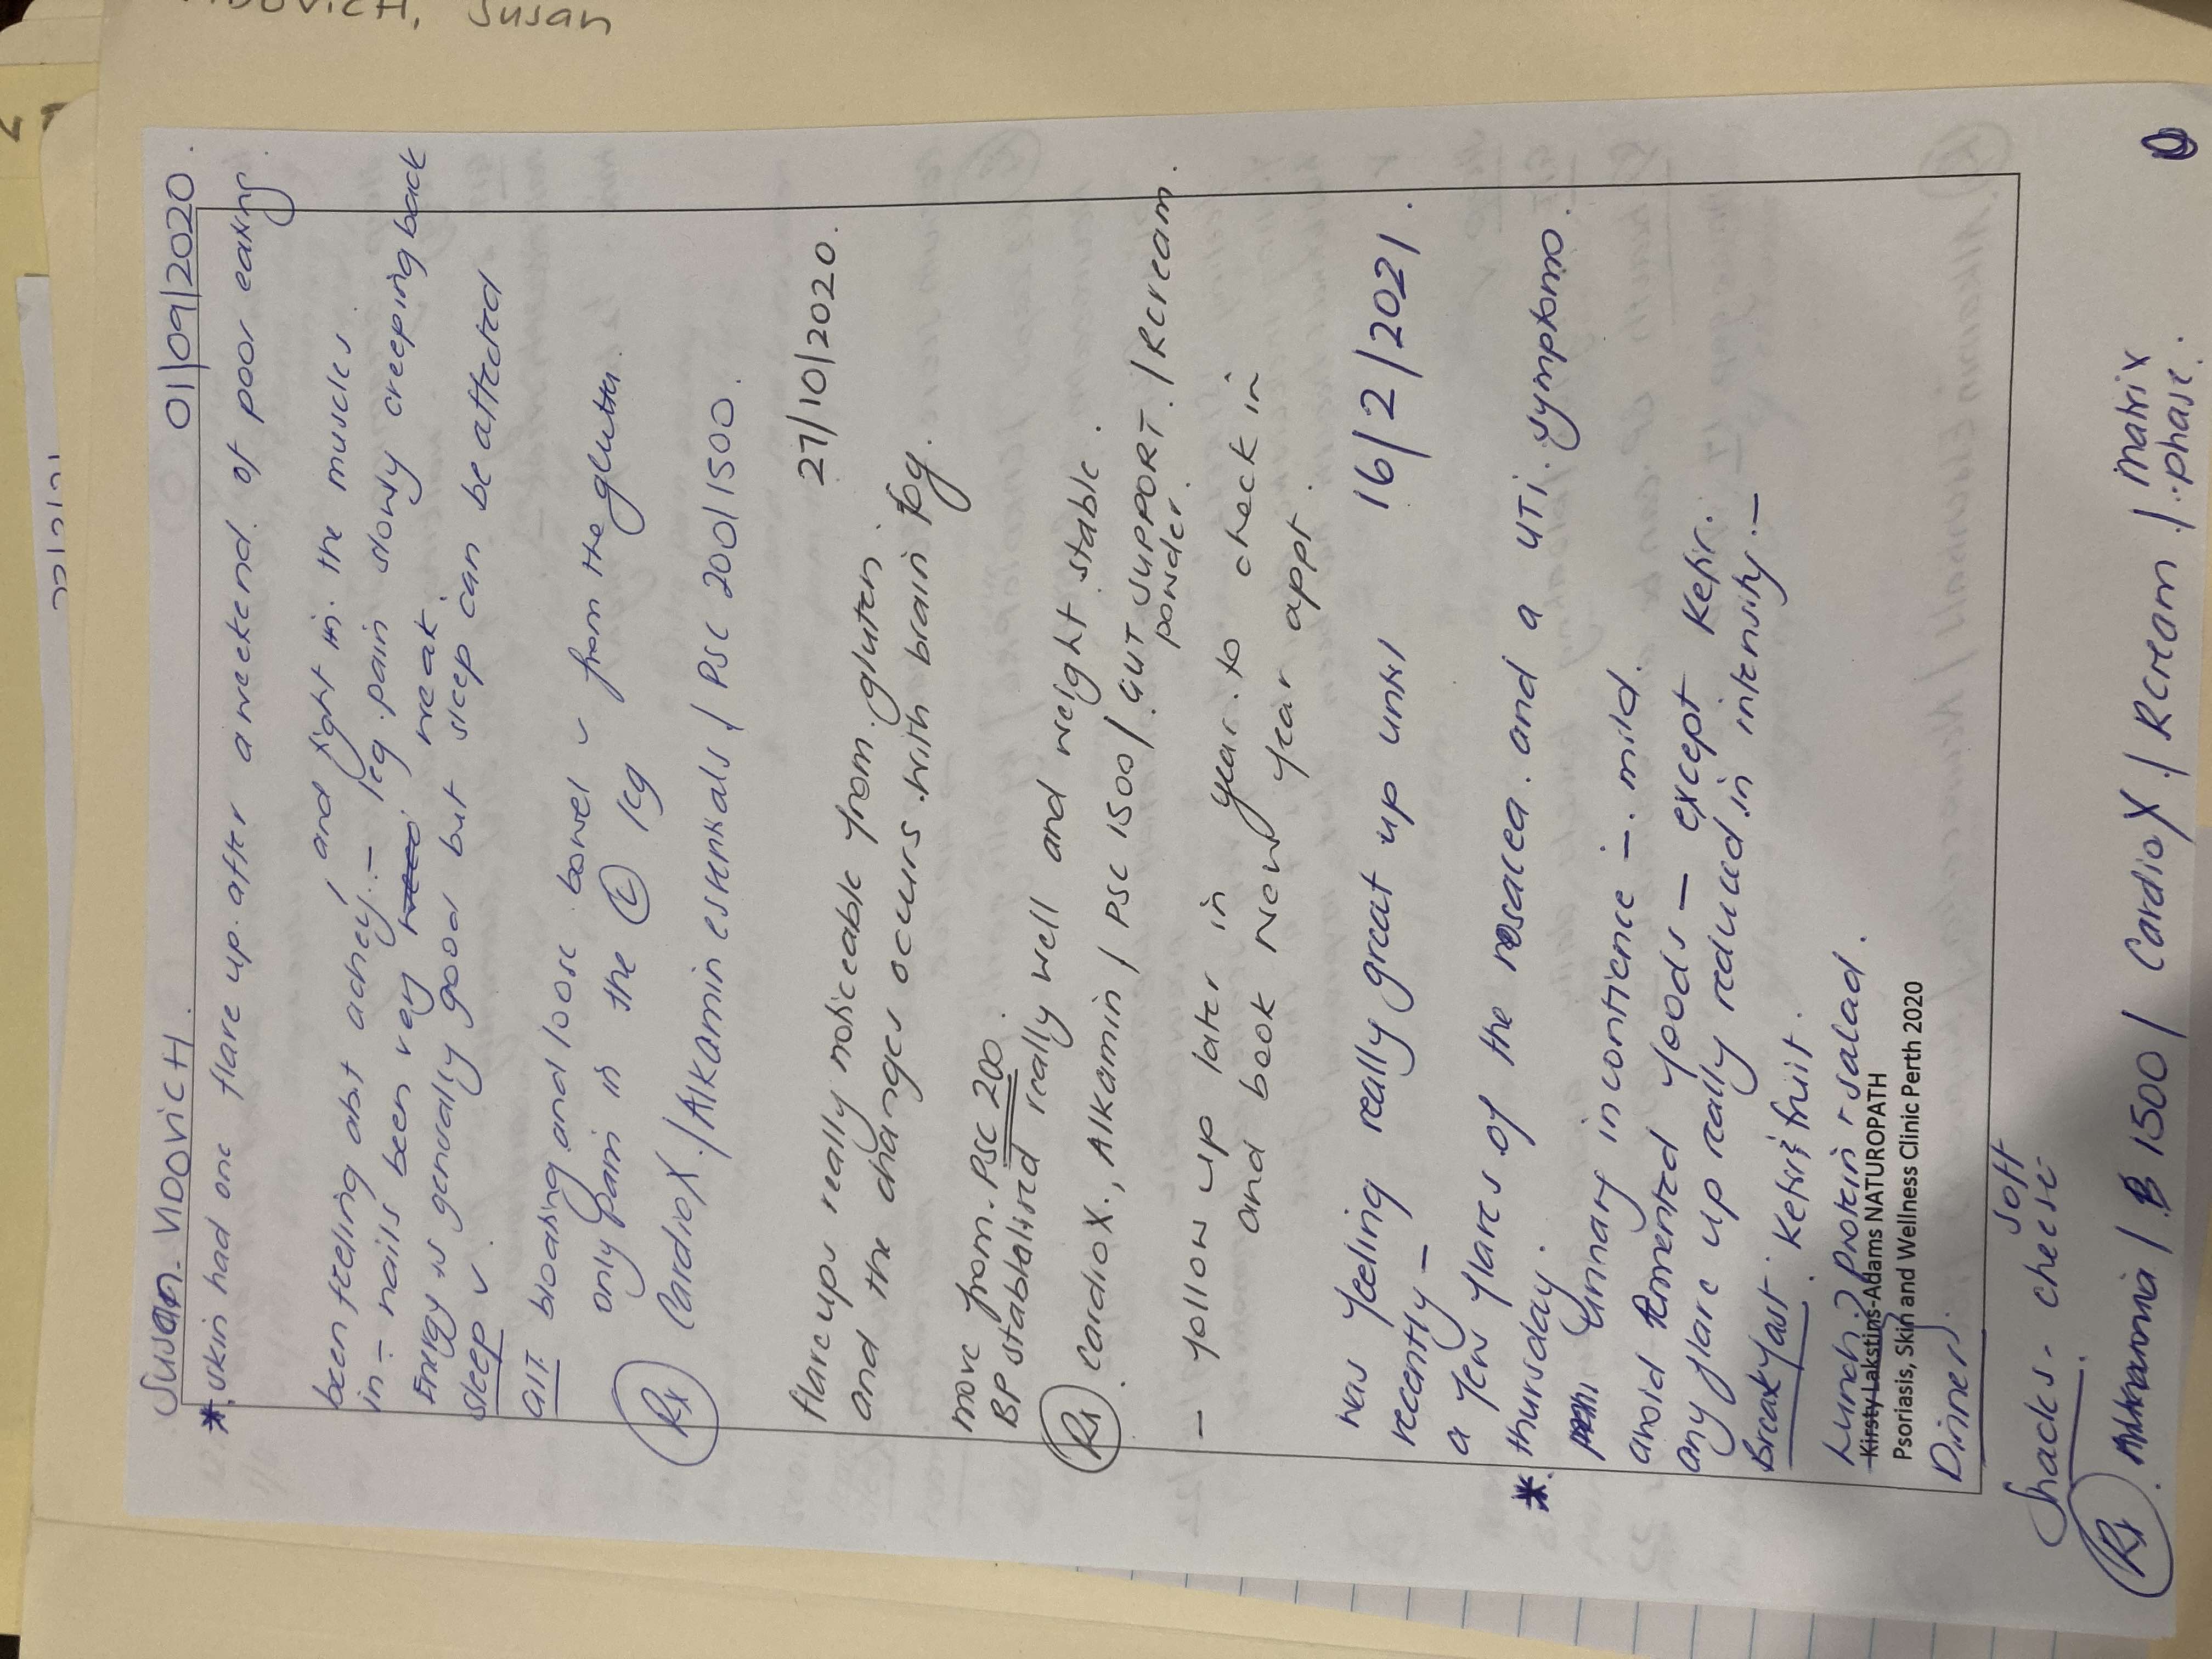 VIDOVICH, Susan
Susan VIDOVICH. 01/09/2020.
* skin had one flare up after a weekend of poor eating.
been feeling abit achey, and tight in the muscles.
in - nails been very weak. - leg pain slowly creeping back
Energy is generally good but sleep can be affected
sleep ✓.
GIT bloating and loose bowel ~ from the gluten.
only pain in the Ⓛ leg
Rx CardioX / Alkamin essentials / PSC 200 / 1500.
27/10/2020.
flare ups really noticeable from gluten.
and the changes occurs with brain fog.
move from PSC 200.
BP stabilised really well and weight stable.
Rx CardioX, Alkamin / PSC 1500 / GUT SUPPORT / RCream.
powder.
- follow up later in year to check in
and book New year appt.
was feeling really great up until 16/2/2021.
recently -
a few flares of the rosacea and a UTI symptoms.
* thursday.
urinary incontience - mild.
avoid fermented foods - except Kefir.
any flare up really reduced in intensity. -
Breakfast. Kefir & fruit.
Lunch } protein + salad.
Kirsty Lakstins-Adams NATUROPATH
Psoriasis, Skin and Wellness Clinic Perth 2020
Dinner }
soft
Snacks - cheese
Rx / 1500 / CardioX / RCream / matrix
phase.